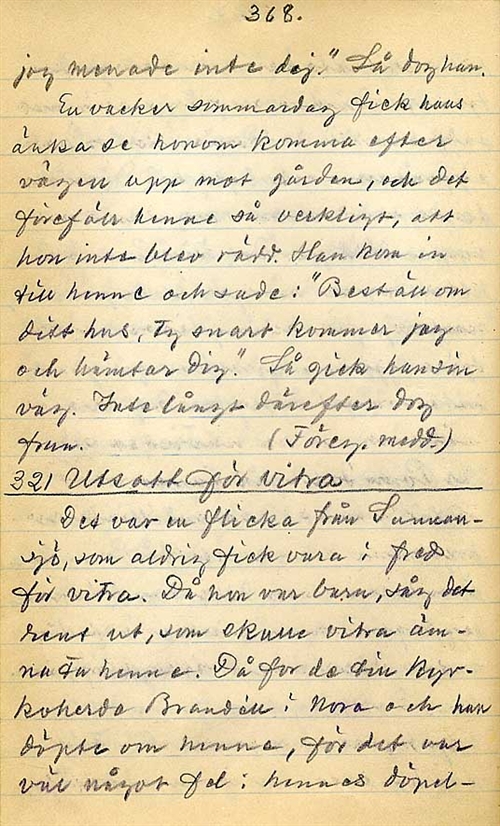 368.
jog menade inte dej." Så dog han.
En vacker sommardag fick hans
änka se honom komma efter
vägen upp mot gården, och det
föreföll henne så verkligt, att
hon inte blev rädd. Han kom in
till henne och sade: "Beställ om
ditt hus, ty snart kommer jag
och hämtar dig". Så gick han sin
väg. Inte långt därefter dog
frun. (Föreg. medd.)
321 Utsatt för vitra
Det var en flicka från Sunnan-
sjö, som aldrig fick vara i fred
för vitra. Då hon var barn, såg det
rent ut, som skulle vitra äm-
na ta henne. Då for de till kyr-
koherde Brandell i Nora och han
döpte om henne, för det var
väl något fel i hennes döpel-